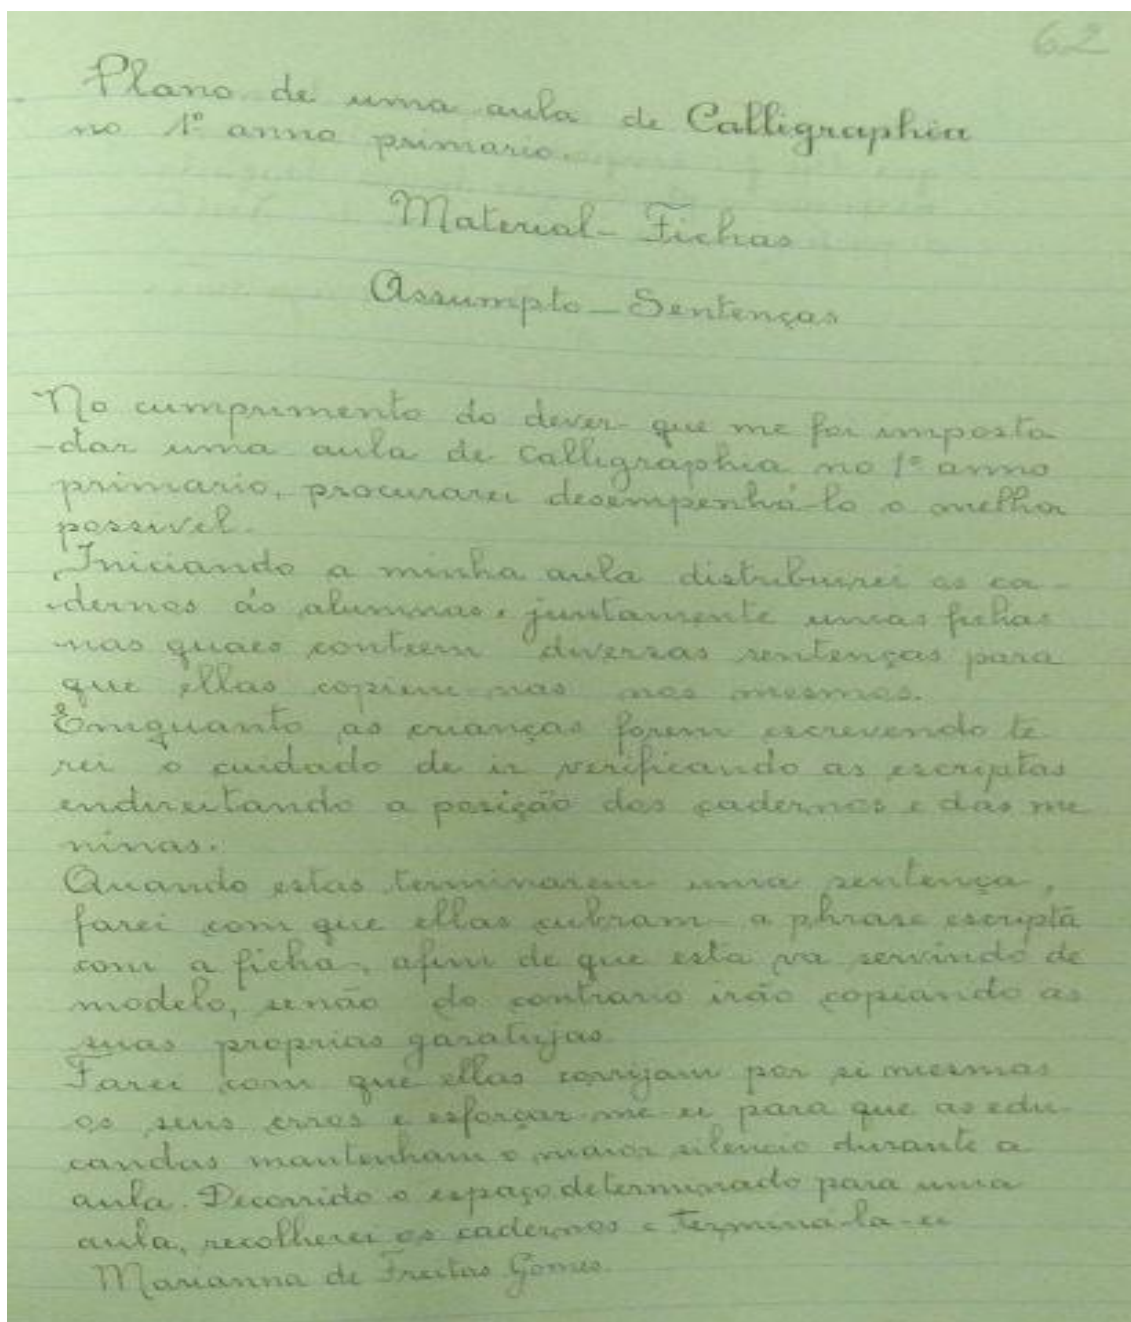 62
Plano de uma aula de Calligraphia
no 1º anno primario.
Material - Fichas
Assumpto - Sentenças
No cumprimento do dever que me foi imposto
-dar uma aula de Calligraphia no 1º anno
primario, procurarei desempenhá-lo o melhor
possivel.
Iniciando a minha aula distribuirei os ca-
dernos ás alumnas, juntamente umas fichas
nas quaes contem diversas sentenças para
que ellas copiem-nas nos mesmos.
Emquanto as crianças forem escrevendo te
rei o cuidado de ir verificando as escriptas
endireitando a posição dos cadernos e das me
ninas.
Quando estas terminarem uma sentença,
farei com que ellas cubram a phrase escripta
com a ficha, afim de que esta va servindo de
modelo, senão do contrario irão copiando as
suas proprias garatujas.
Farei com que ellas corrijam por si mesmas
os seus erros e esforçar-me-ei para que as edu-
candas mantenham o maior silencio durante a
aula. Decorrido o espaço determinado para uma
aula, recolherei os cadernos e terminá-la-ei
Marianna de Freitas Gomes